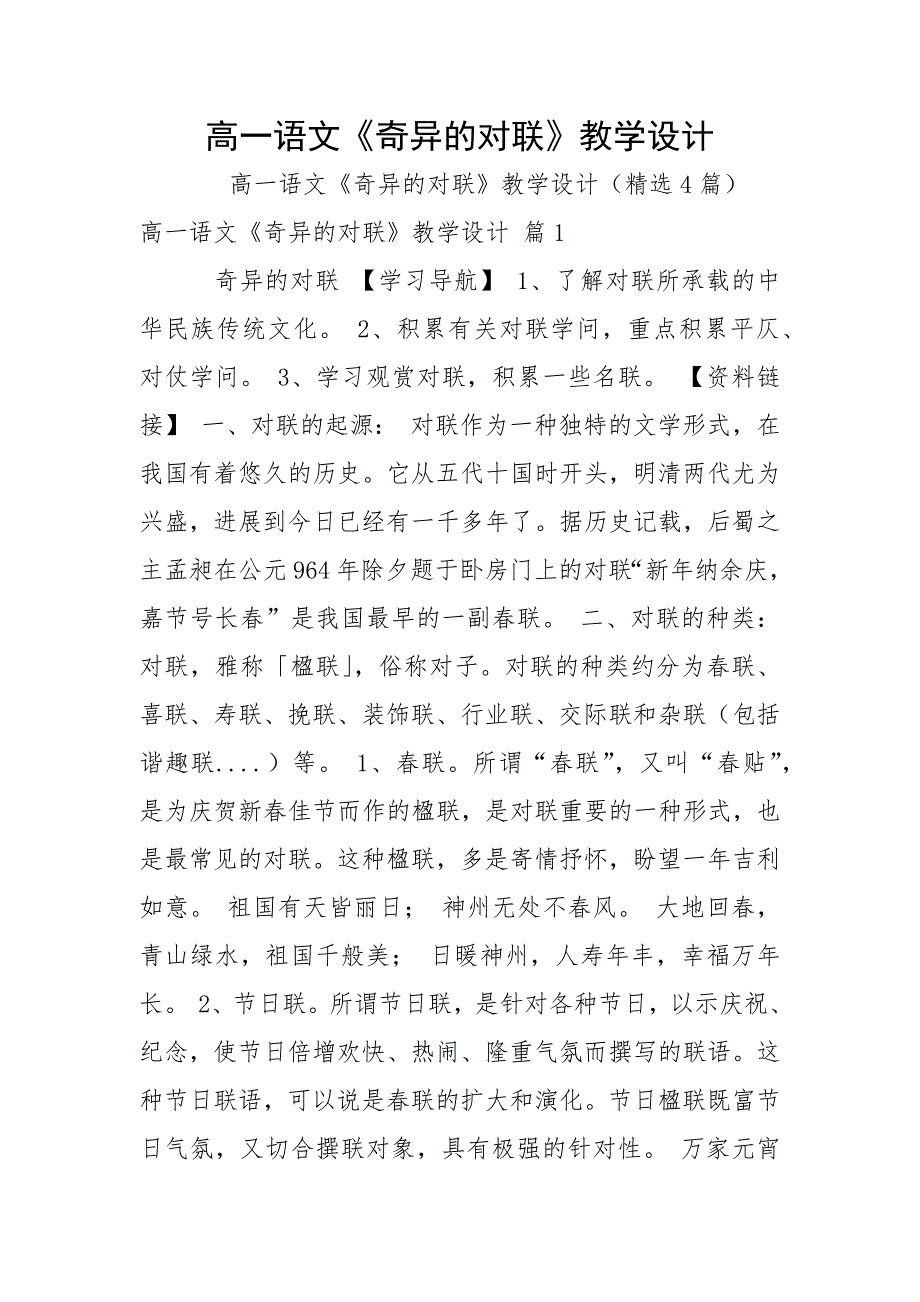 高一语文《奇异的对联》教学设计
高一语文《奇异的对联》教学设计（精选4篇）
高一语文《奇异的对联》教学设计 篇1
奇异的对联 【学习导航】 1、了解对联所承载的中
华民族传统文化。 2、积累有关对联学问，重点积累平仄、
对仗学问。 3、学习观赏对联，积累一些名联。 【资料链
接】 一、对联的起源： 对联作为一种独特的文学形式，在
我国有着悠久的历史。它从五代十国时开头，明清两代尤为
兴盛，进展到今日已经有一千多年了。据历史记载，后蜀之
主孟昶在公元964年除夕题于卧房门上的对联“新年纳余庆，
嘉节号长春”是我国最早的一副春联。 二、对联的种类：
对联，雅称「楹联」，俗称对子。对联的种类约分为春联、
喜联、寿联、挽联、装饰联、行业联、交际联和杂联（包括
谐趣联....）等。 1、春联。所谓“春联”，又叫“春贴”，
是为庆贺新春佳节而作的楹联，是对联重要的一种形式，也
是最常见的对联。这种楹联，多是寄情抒怀，盼望一年吉利
如意。 祖国有天皆丽日； 神州无处不春风。 大地回春，
青山绿水，祖国千般美； 日暖神州，人寿年丰，幸福万年
长。 2、节日联。所谓节日联，是针对各种节日，以示庆祝、
纪念，使节日倍增欢快、热闹、隆重气氛而撰写的联语。这
种节日联语，可以说是春联的扩大和演化。节日楹联既富节
日气氛，又切合撰联对象，具有极强的针对性。 万家元宵